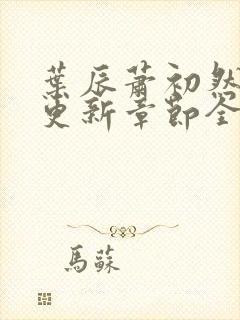 葉辰蕭初然
更新章節全
馬蘇